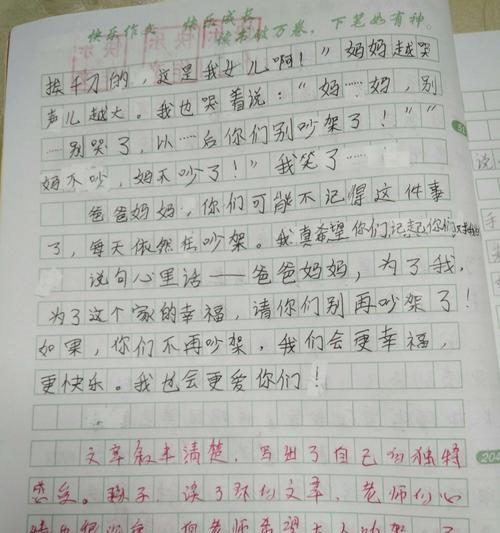 快乐作文 快乐成长
读书破万卷，下笔如有神。
挨千刀的，这是我女儿啊！”妈妈越哭
声儿越大。我也哭着说：“妈……妈，别
……别哭了，以……后你们别吵架了！”“
妈不吵，妈不吵了！”我笑了……
爸爸妈妈，你们可能不记得这件事
了，每天依然在吵架。我真希望你们记起你们
说句心里话——爸爸妈妈，为了我，
为了这个家的幸福，请你们别再吵架了！
如果，你们不再吵架，我们会更幸福，
更快乐。我也会更爱你们！
文章叙事清楚，写出了自己的独特
感受。孩子，读了你的文章，老师的心